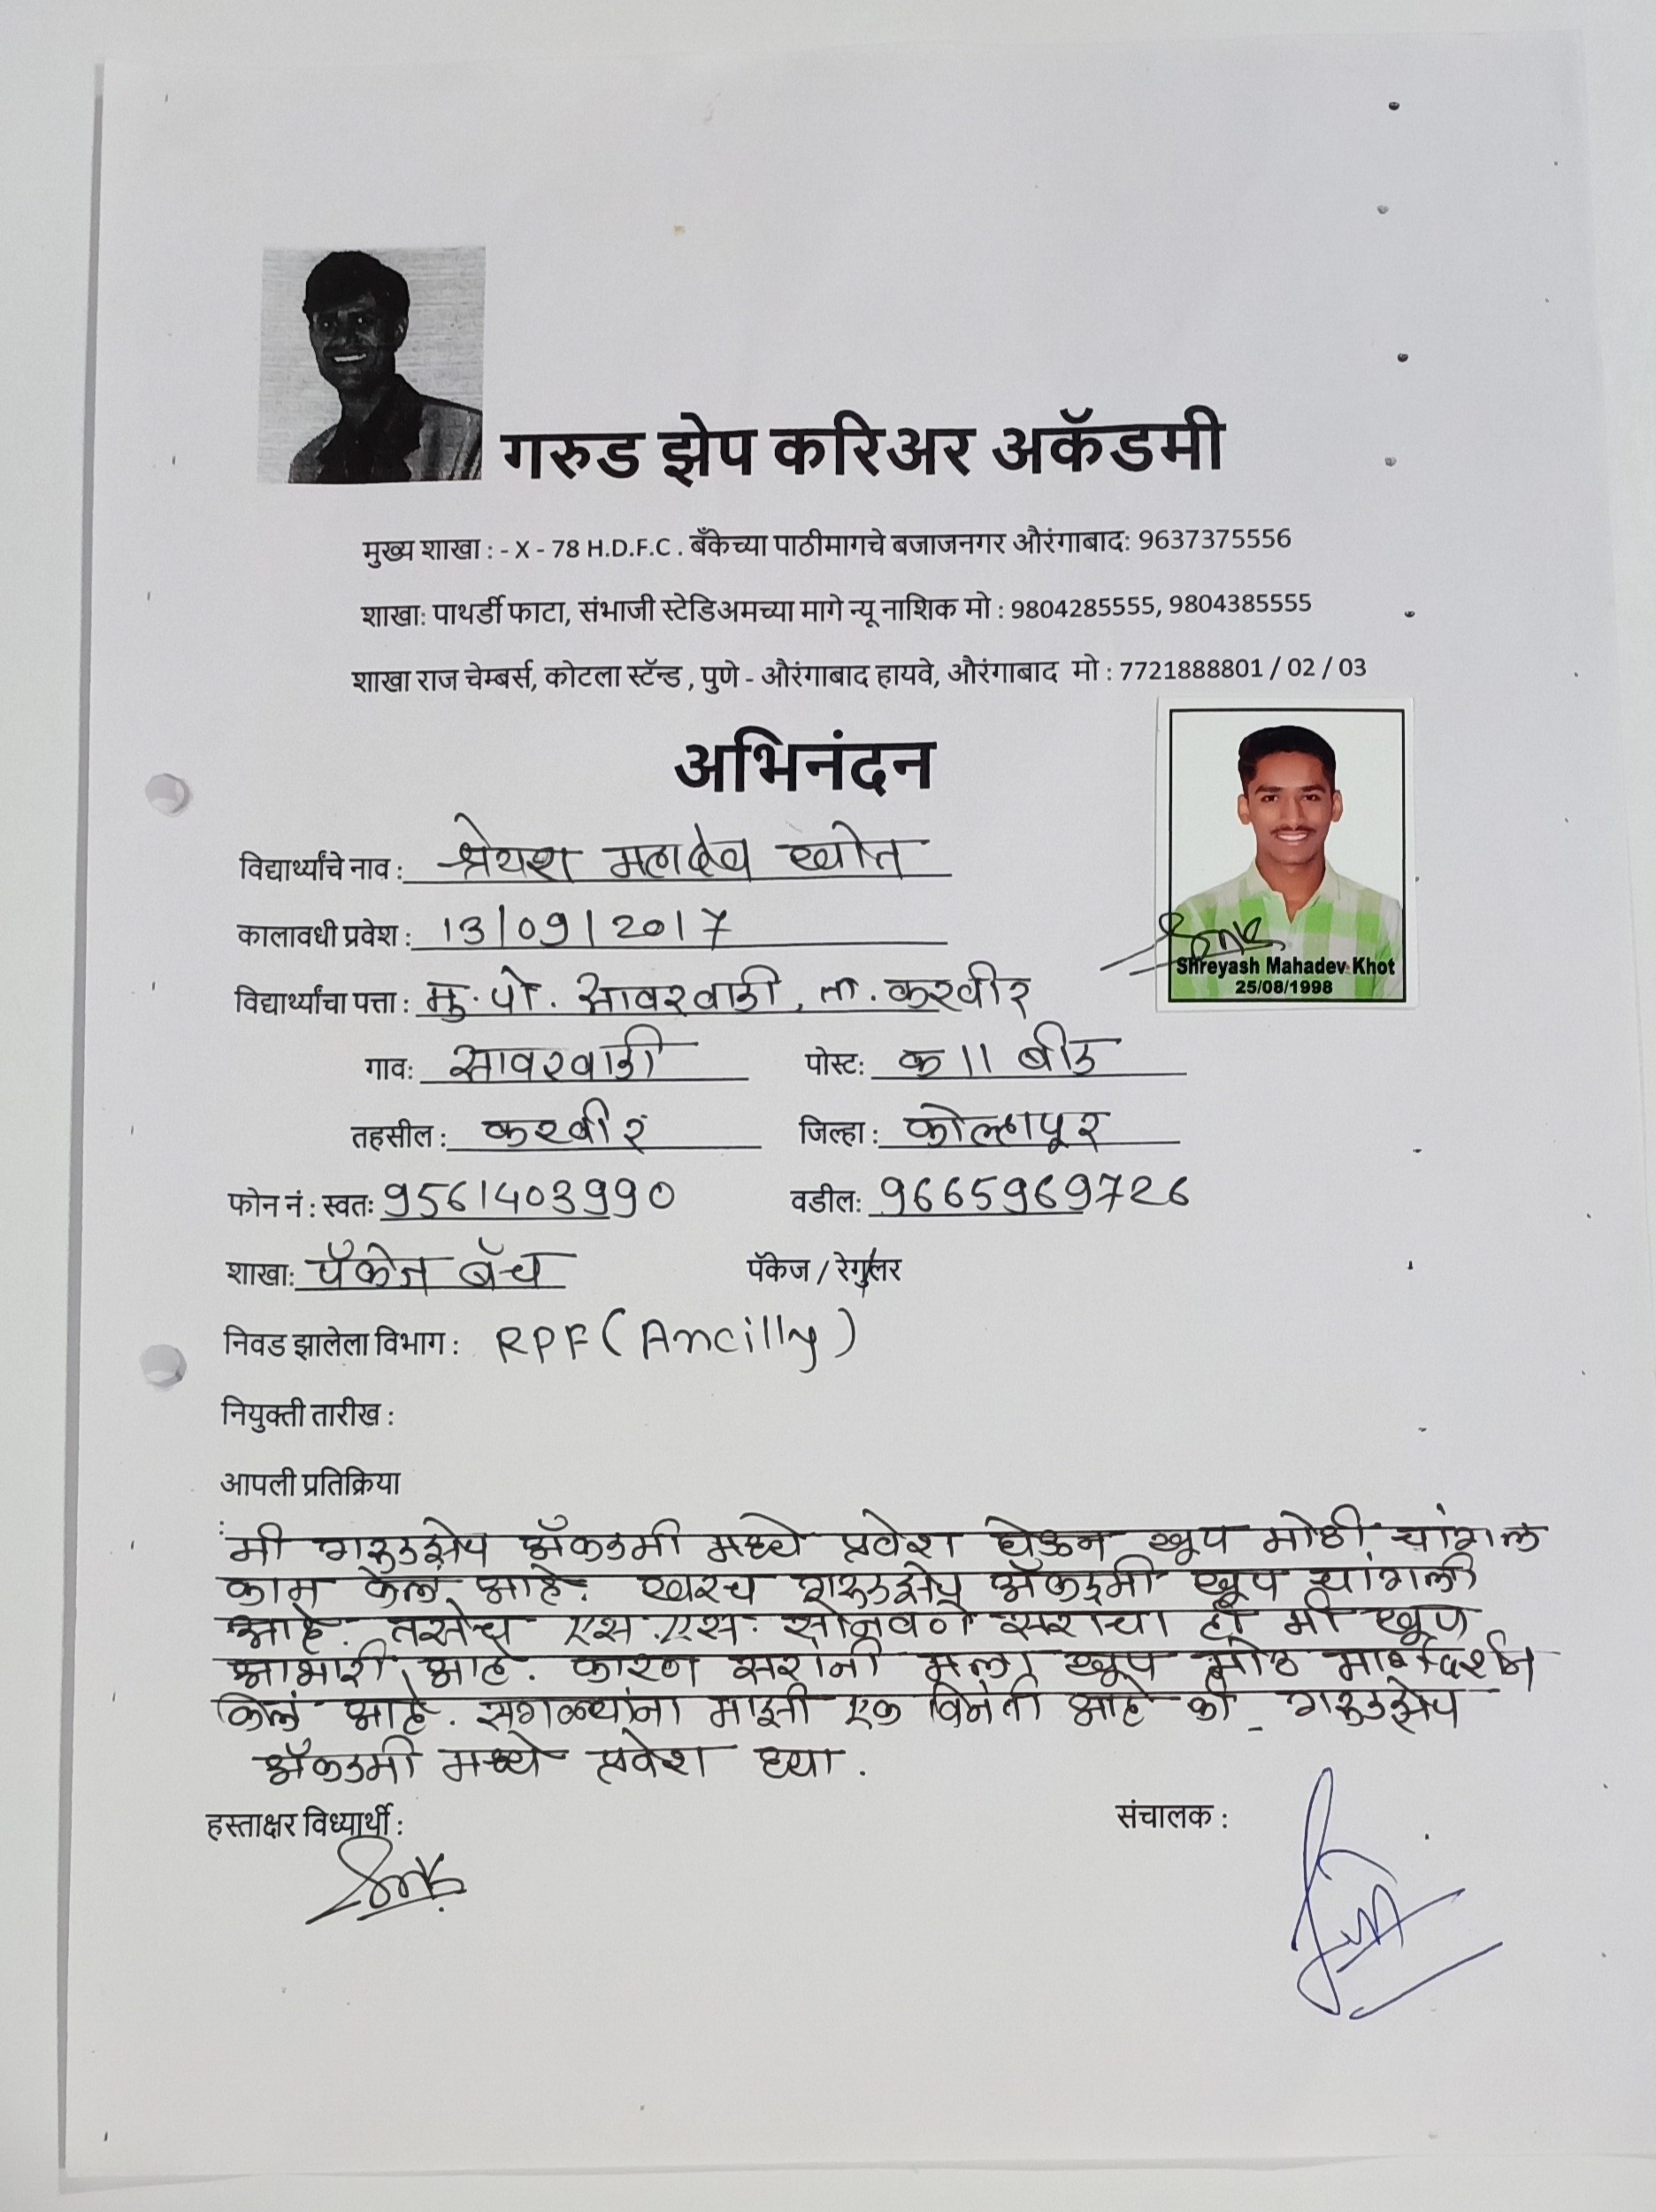 गरुड झेप करिअर अकॅडमी
मुख्य शाखा : - X - 78 H.D.F.C . बँकेच्या पाठीमागचे बजाजनगर औरंगाबाद: 9637375556
शाखा: पाथर्डी फाटा, संभाजी स्टेडिअमच्या मागे न्यू नाशिक मो : 9804285555, 9804385555
शाखा राज चेम्बर्स, कोटला स्टॅन्ड , पुणे - औरंगाबाद हायवे, औरंगाबाद मो : 7721888801 / 02 / 03
अभिनंदन
विद्यार्थ्यांचे नाव : श्रेयश महादेव खोत
कालावधी प्रवेश : 13/09/2017
Shreyash Mahadev Khot
25/08/1998
विद्यार्थ्यांचा पत्ता : मु. पो. सावरवाडी, ता. करवीर
गाव: सावरवाडी पोस्ट: क ।। बीड
तहसील : करवीर जिल्हा : कोल्हापूर
फोन नं : स्वत: 9561403990 वडील: 9665969726
शाखा: पॅकेज बॅच पॅकेज / रेगुलर
निवड झालेला विभाग : RPF (Ancilly)
नियुक्ती तारीख :
आपली प्रतिक्रिया
: मी गरुडझेप अ‍ॅकडमी मध्ये प्रवेश घेऊन खूप मोठी चांगल
काम केलं आहे. खरच गरुडझेप अ‍ॅकडमी खूप चांगली
आहे. तसेच एस.एस. सोनवणे सराचा ही मी खूप
आभारी आहे. कारण सरांनी मला खूप मोठ मार्गदर्शन
केलं आहे. सगळ्यांना माझी एक विनंती आहे की गरुडझेप
अ‍ॅकडमी मध्ये प्रवेश घ्या.
हस्ताक्षर विध्यार्थी : संचालक :